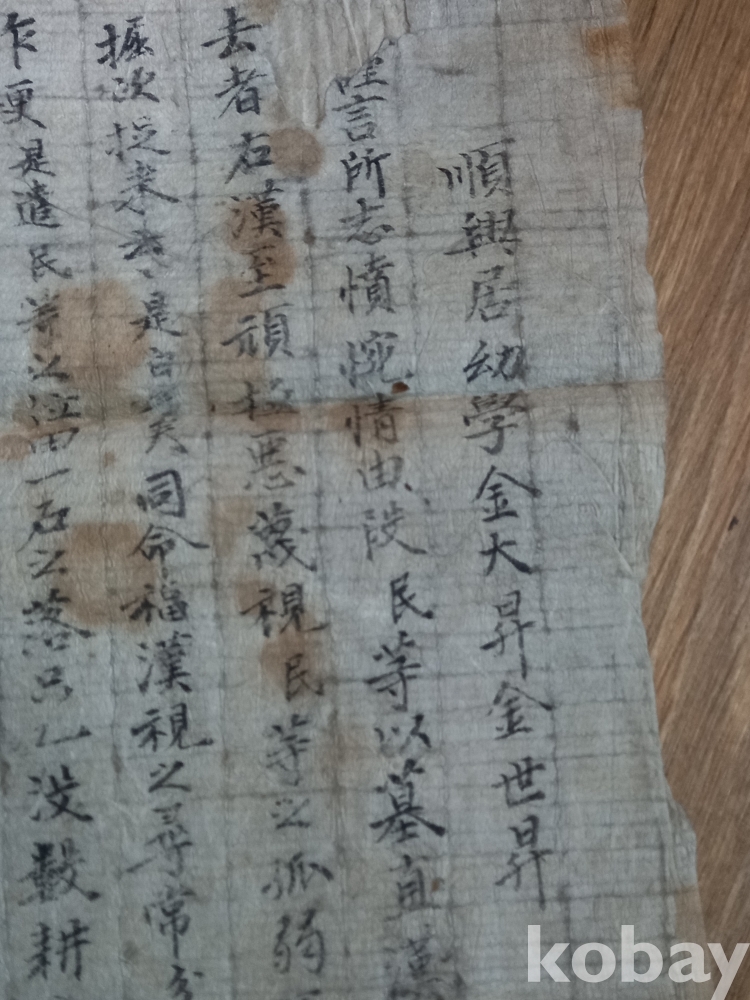 順興居幼學金大昇金世昇
謹言所志憤惋情由段民等以墓直漢
去者右漢至頑極惡蔑視民等之孤弱
掘次捉來去是白如矣同命福漢視之尋常
乍更是遣民等之位田一石之落只乙沒數耕
kobay